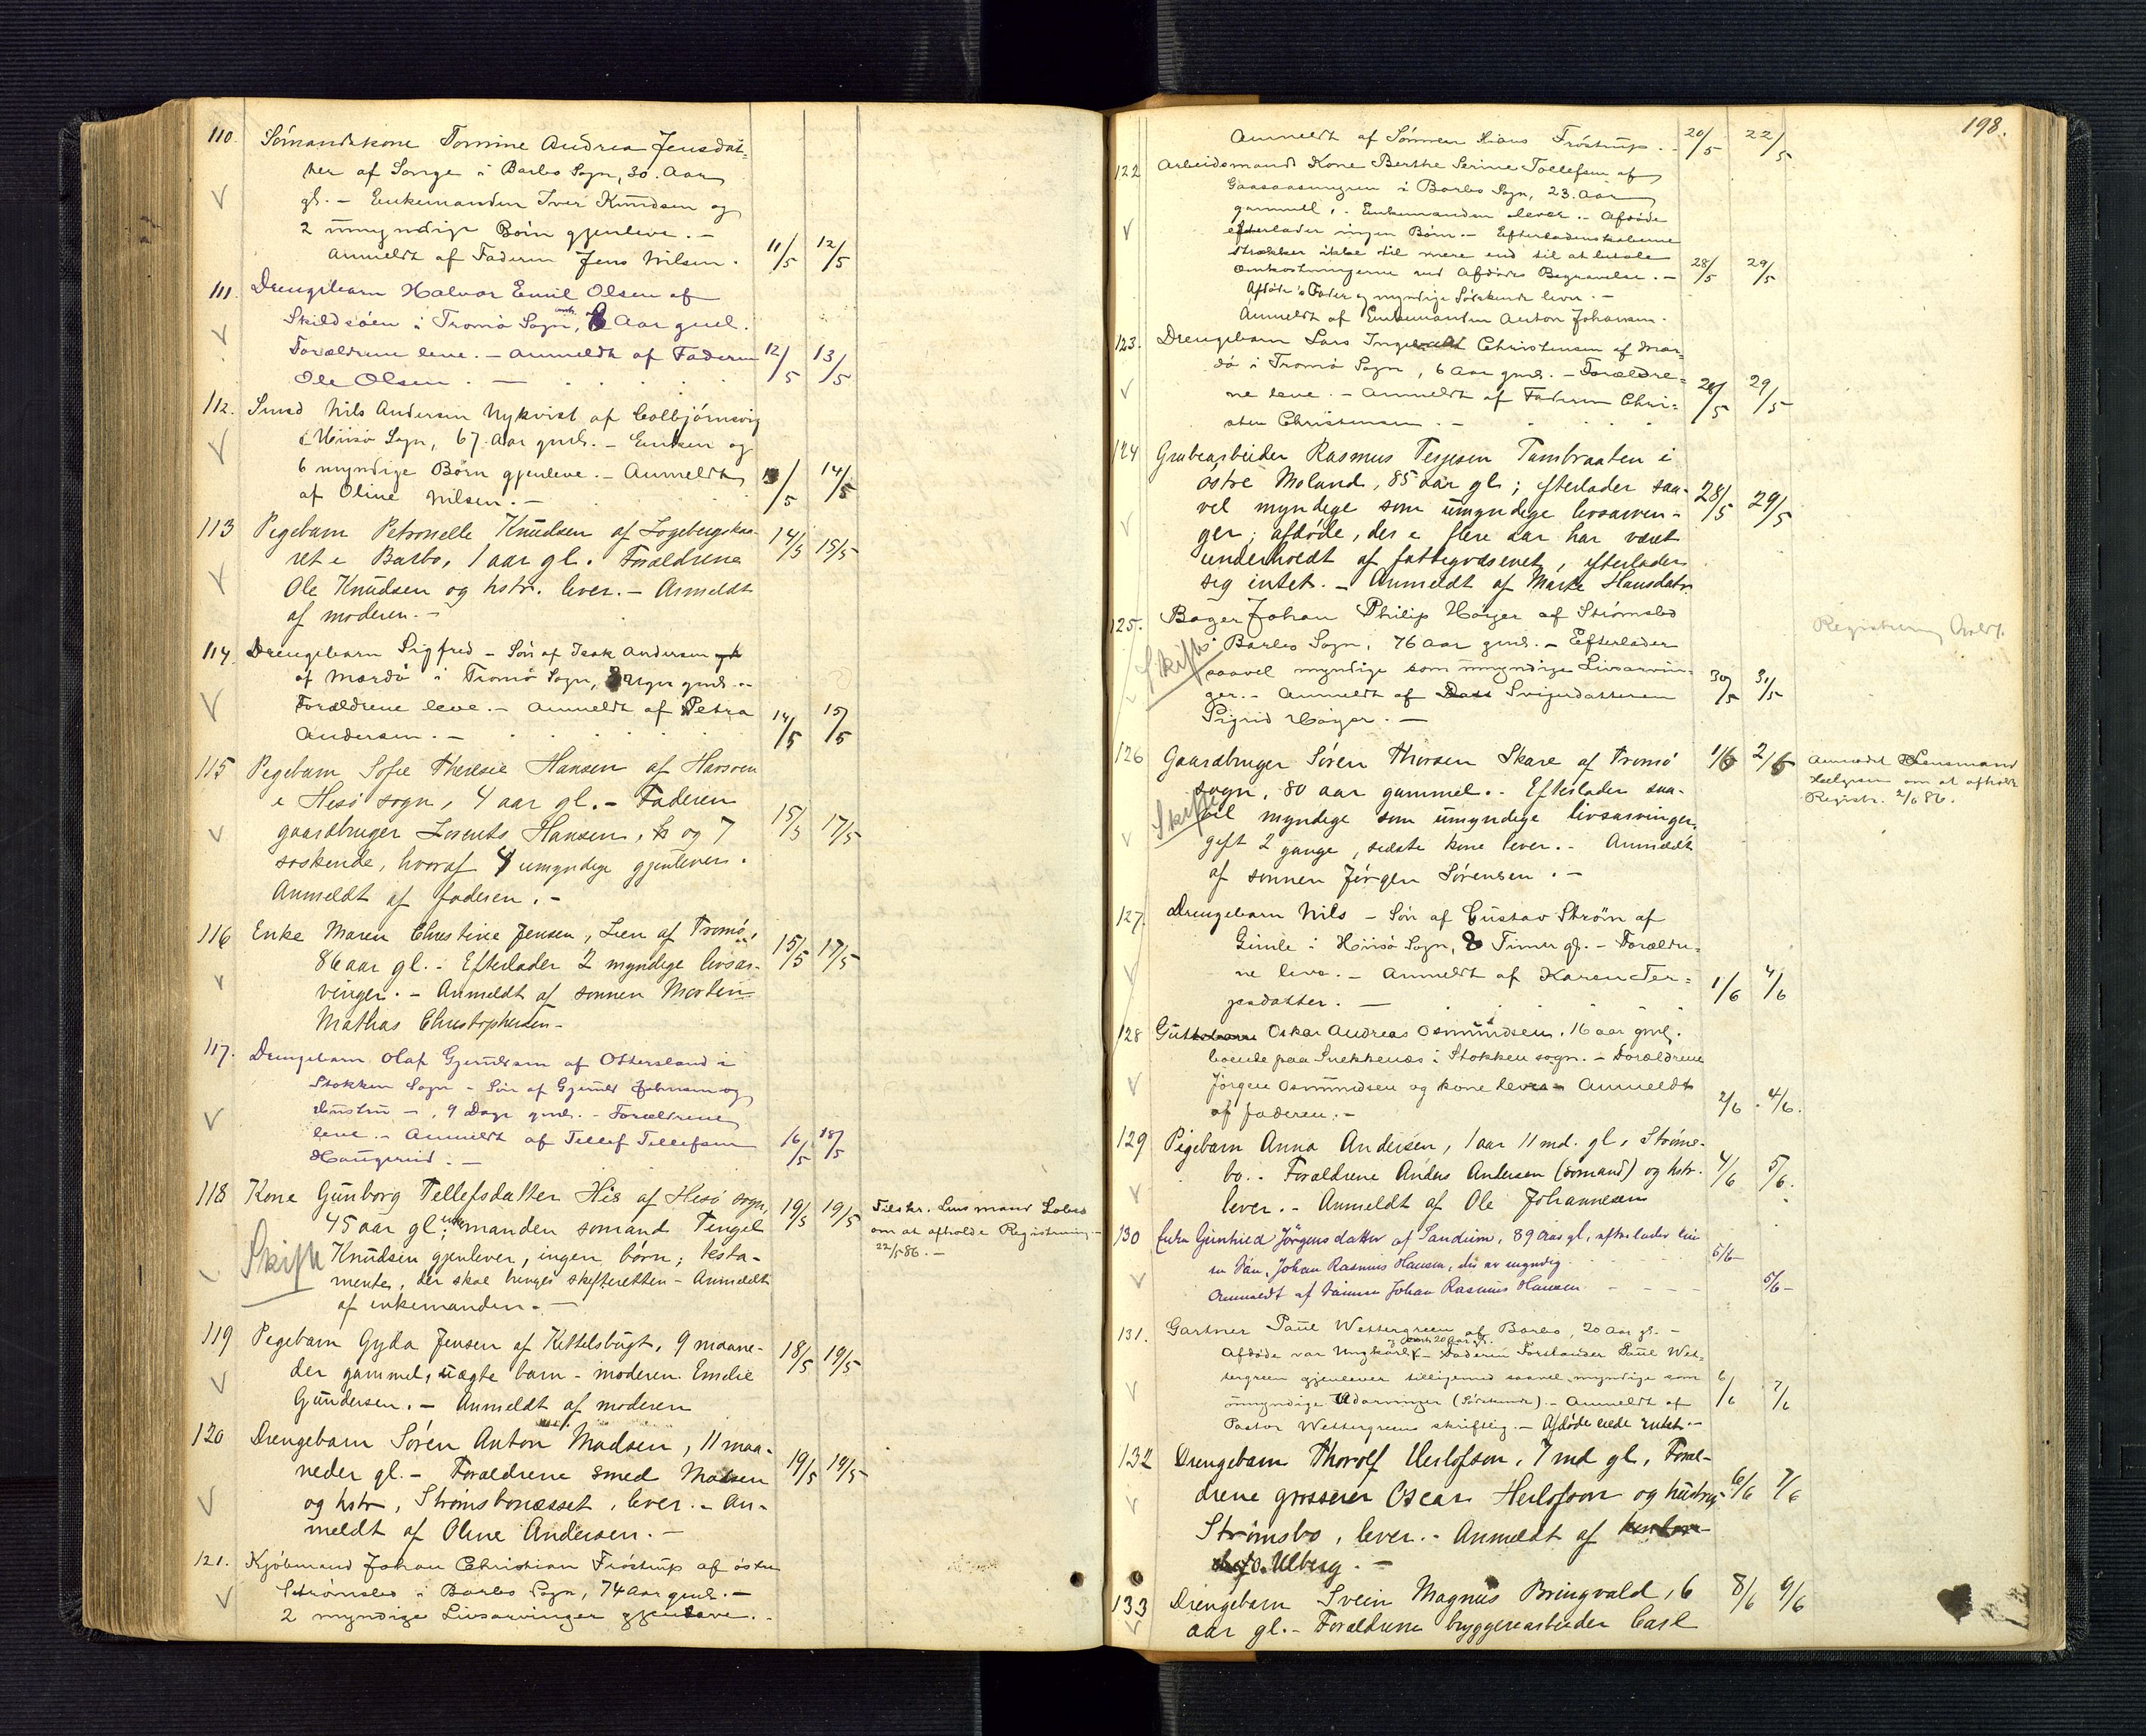 110. Sömandskone Tomine Andrea Jensdat=
ter af Songe i Barbo Sogn, 30. Aar
gl. - Enkemanden Iver Knudsen og
2 umyndige Börn gjenleve. -
Anmeldt af Faderen Jens Nilsen. 11/5 12/5
111. Drengebarn Halvor Emil Olsen af
Skildsöen i Tromö Sogn, 8 Aar gml.
Forældrene leve. - Anmeldt af Faderen 12/5 13/5
Ole Olsen. -
112. Smed Nils Andersen Nykvist af Colbjörnsvig
i Hiisö Sogn, 67. Aar gml. - Enken og
6 myndige Börn gjenleve. - Anmeldt 13/5 14/5
af Oline Nilsen. -
113 Pigebarn Petronelle Knudsen af Logebergskar-
ret i Barbo, 1 aar gl. Forældrene 14/5 15/5
Ole Knudsen og hstr. lever. - Anmeldt
af moderen. -
114. Drengebarn Sigfred - Sön af Isak Andersen
af Mærdö i Tromö Sogn, 3 Uger gml. -
Forældrene leve. - Anmeldt af Petra 14/5 15/5
Andersen. -
115 Pigebarn Sofie Theresie Hansen af
i Hisö sogn, 4 aar gl. - Faderen
gaardbruger Lorents Hansen, og 7 15/5 17/5
söskende, hvoraf 4 umyndige gjenlever.
Anmeldt af faderen. -
116 Enke Maren Christine Jensen, Lien af Tromö,
86 aar gl. - Efterlader 2 myndige livsar- 15/5 17/5
vinger. - Anmeldt af sönnen Morten
Mathias Christophersen -
117. Drengebarn Olaf Gjeruldsen af Ottersland i
Stokken Sogn - Sön af Gjeruld Johnsen og
Hustru -, 9 Dage gml. - Forældrene
leve. - Anmeldt af Tellef Tellefsen 16/5 18/5
Haugerud. -
118 Kone Gunborg Tellefsdatter His af Hisö sogn, 19/5 19/5 Tilskr. Lensmand
45 aar gl; enkemanden sömand Tengel om at afholde Registrering -
Skifte Knudsen gjenlever, ingen börn; testa- 22/5 86. -
mente, der skal bringes skifteretten - Anmeldt
af enkemanden. -
119 Pigebarn Gyda Jensen af Kittelsbugt, 9 maane- 18/5 19/5
der gammel, uægte barn - moderen Emelie
Gundersen. - Anmeldt af moderen
120 Drengebarn Sören Anton Madsen, 11 maa-
neder gl. - Forældrene smed Madsen 19/5 19/5
og hstr, Strömsbonæsset, lever. - An-
meldt af Oline Andersen. -
121. Kjöbmand Johan Christian Fröstrup af östre
Strömsbo i Barbo Sogn, 74 Aar gml. -
2 myndige Livsarvinger gjenleve. -
198.
Anmeldt af Sönnen Hans Fröstrup. - 20/5 22/5
122 Arbeidsmands Kone Berthe Serine Tollefsen af
Gaasaasmyren i Barbo Sogn, 23. Aar
gammel. - Enkemanden lever. - Afdöde
efterlader ingen Börn. - Efterladenskaberne
strækker ikke til mere end til at betale
Omkostningerne ved Afdödes Begravelse. - 28/5 29/5
Afdöde's Fader og myndige Söskende lever. -
Anmeldt af Enkemanden Anton Johansen.
123. Drengebarn Lars Ingevald Christensen af Mær=
dö i Tromö Sogn, 6 Aar gml. - Forældre=
ne leve. - Anmeldt af Faderen Chri= 28/5 29/5
sten Christensen. -
124 Grubearbeider Rasmus Terjesen Tambraaten i
östre Moland, 85 aar gl; efterlader saa- 28/5 29/5
vel myndige som umyndige livsarvin-
ger; afdöde, der i flere aar har været
underholdt af fattigvæsenet, efterlader
sig intet. - Anmeldt af Marte Hansdatr.
125. Bager Johan Philip Höyer af Strömsbo
Skifte i Barbo Sogn, 76 aar gml. - Efterlader Registrering
saavel myndige som umyndige Livsarvin-
ger. - Anmeldt af Svigerdatteren 30/5 31/5
Sigrid Höyer. -
126 Gaardbruger Sören Thorsen Skare af Tromö 1/6 2/6 Anmodet Lensmand
sogn, 80 aar gammel. - Efterlader saa- Helgesen om at afholde
Skifte vel myndige som umyndige livsarvinger, Registr. 2/6 86.
gift 2 gange, sidste kone lever. - Anmeldt
af sönnen Jörgen Sörensen. -
127. Drengebarn Nils - Sön af Gustav Ström af
Gimle i Hiisö Sogn, 8 Timer gl. - Forældre=
ne leve. - Anmeldt af Karen Ter= 1/6 4/6
jesdatter. -
128 Gut Oskar Andreas Osmundsen. 16 aar gml.
boende paa Snekkenæs i Stokken sogn. - Forældrene
Jörgen Osmundsen og kone lever - Anmeldt
af faderen. - 2/6 4/6.
129 Pigebarn Anna Andersen, 1 aar 11 md. gl, Ströms-
bo. - Forældrene Anders Andersen (sömand) og hstr. 4/6 5/6.
lever. - Anmeldt af Ole Johannesen
130 Enke Gunhild Jörgensdatter af Sandum, 89 Aar gl, efterlader kun
en Sön, Johan Rasmus Hansen, der er myndig. 5/6
Anmeldt af Sönnen Johan Rasmus Hansen 5/6
131. Gartner Paul Wettergreen af Barbo, 20 Aar gl. -
Afdöde var Ungkarl - Faderen Forstander Paul Wet=
tergreen gjenlever tilligemed saavel myndige som
umyndige Udarvinger (Söskende). - Anmeldt af 6/6 7/6
Pastor Wettergreen skriftlig. - Afdöde eiede intet. -
132 Drengebarn Thorolf Herlofson, 7 md gl, Foræl-
drene grosserer Oscar Herlofson og hustru, 6/6 7/6
Strömsbo, lever. - Anmeldt af
O. Ulberg. -
133 Drengebarn Svein Magnus Bringvald, 6 8/6 9/6
aar gl. - Forældrene bryggeriarbeider Carl